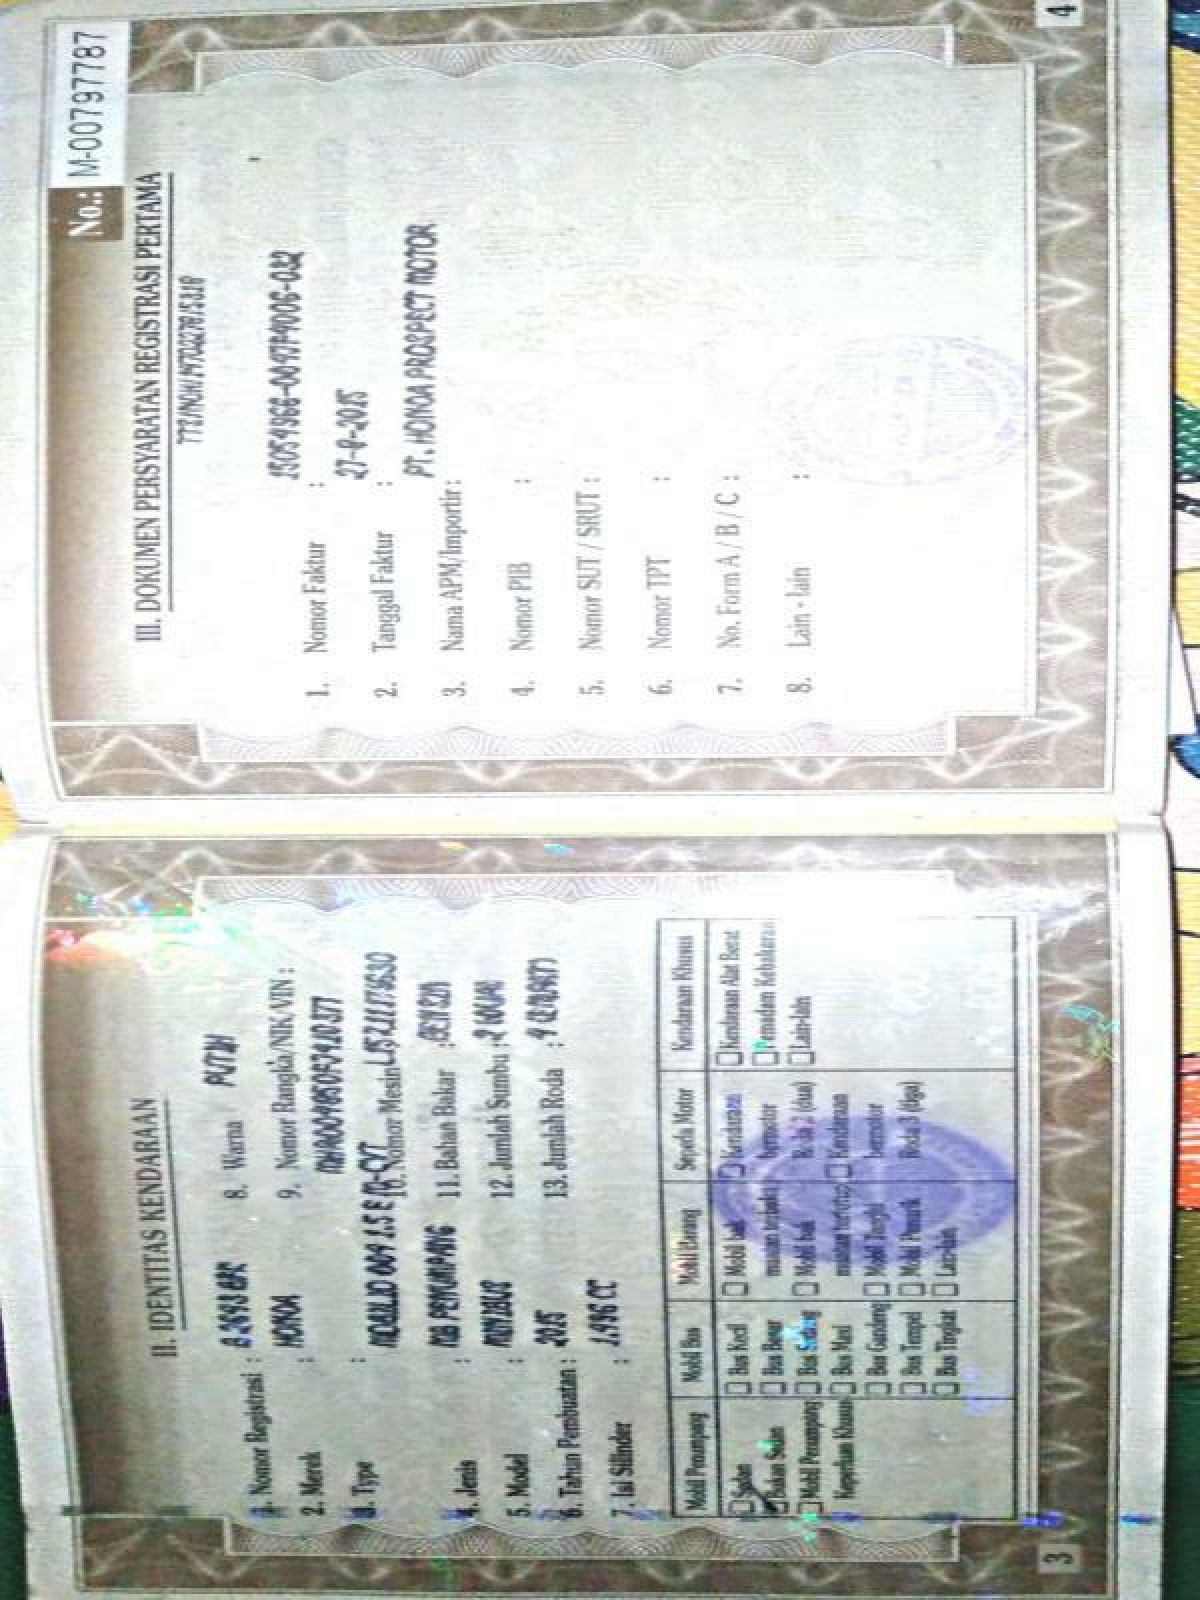 II. IDENTITAS KENDARAAN
1. Nomor Registrasi :
2. Merek : HONDA
3. Type : MOBILIO DD4 1.5 E M-CVT
4. Jenis : MB PENUMPANG
5. Model : MINIBUS
6. Tahun Pembuatan : 2015
7. Isi Silinder : 1.496 CC
8. Warna PUTIH
9. Nomor Rangka/NIK/VIN :
10. Nomor Mesin
11. Bahan Bakar : BENSIN
12. Jumlah Sumbu : 2
13. Jumlah Roda : 4
Mobil Penumpang Mobil Bus Mobil Barang Sepeda Motor Kendaraan Khusus
Sedan
Bukan Sedan
Mobil Penumpang
Keperluan Khusus
Bus Kecil
Bus Besar
Bus Sedang
Bus Maxi
Bus Gandeng
Bus Tempel
Bus Tingkat
Mobil bak
muatan terbuka
Mobil bak
muatan tertutup
Mobil Tangki
Mobil Penarik
Lain-lain
Kendaraan
bermotor
Roda 2 (dua)
Kendaraan
bermotor
Roda 3 (tiga)
Kendaraan Alat Berat
Pemadam Kebakaran
Lain-lain
3
No.: M-00797787
III. DOKUMEN PERSYARATAN REGISTRASI PERTAMA
1. Nomor Faktur :
2. Tanggal Faktur : 27-8-2015
3. Nama APM/Importir : PT. HONDA PROSPECT MOTOR
4. Nomor PIB :
5. Nomor SUT / SRUT :
6. Nomor TPT :
7. No. Form A / B / C :
8. Lain - lain :
4